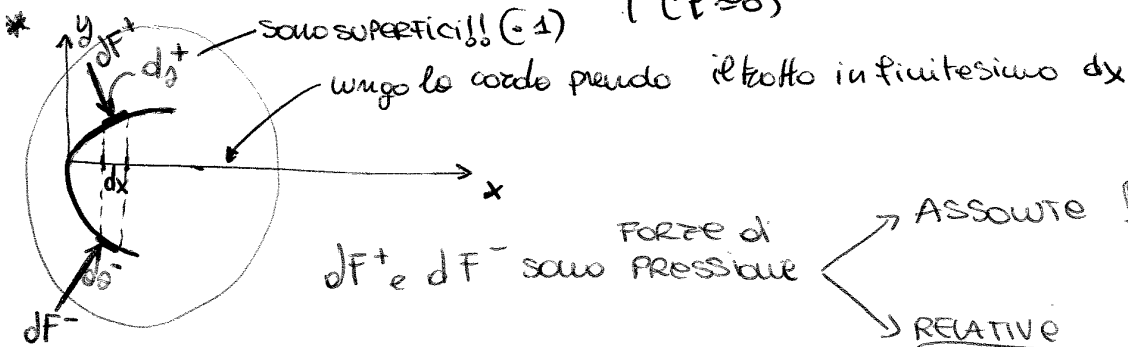 * y dF⁺ ds⁺ sono SUPERFICI!! (·1)
lungo la corda prendo il tratto infinitesimo dx
dx
x
ds⁻
dF⁻
dF⁺ e dF⁻ sono FORZE di PRESSIONE
ASSOLUTE
RELATIVE